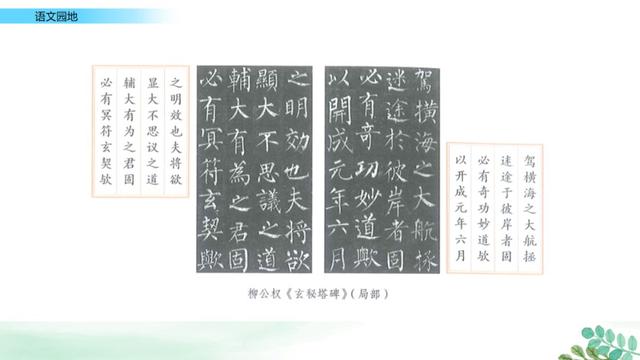 语文园地
之明效也夫将欲
显大不思议之道
辅大有为之君固
必有冥符玄契欤
之明効也夫將欲
顯大不思議之道
輔大有為之君固
必有冥符玄契歟
駕橫海之大航拯
迷途於彼岸者固
必有奇功妙道歟
以開成元年六月
驾横海之大航拯
迷途于彼岸者固
必有奇功妙道欤
以开成元年六月
柳公权《玄秘塔碑》（局部）